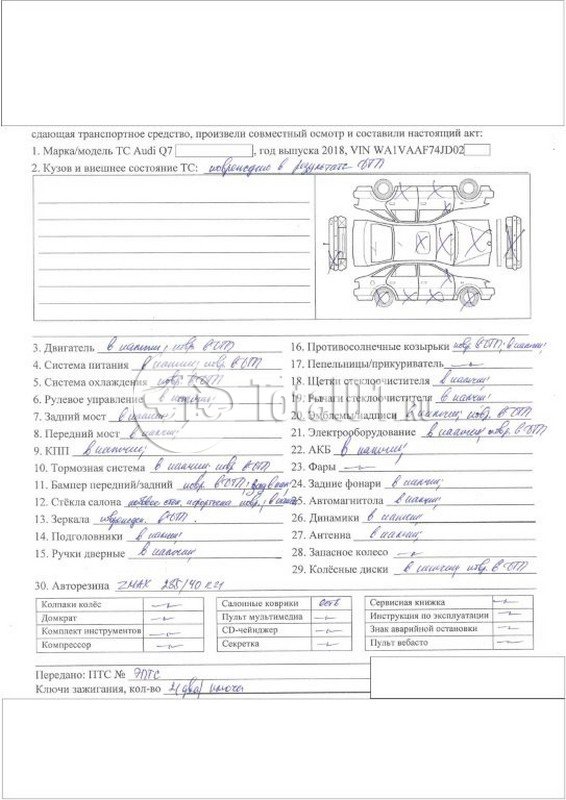 сдающая транспортное средство, произвели совместный осмотр и составили настоящий акт:
1. Марка/модель ТС Audi Q7 , год выпуска 2018, VIN WA1VAAF74JD02
2. Кузов и внешнее состояние ТС: повреждено в результате ДТП
3. Двигатель в наличии, повр. в ДТП
4. Система питания в наличии, повр. в ДТП
5. Система охлаждения повр. в ДТП
6. Рулевое управление в наличии
7. Задний мост в наличии
8. Передний мост в наличии
9. КПП в наличии
10. Тормозная система в наличии повр. в ДТП
11. Бампер передний/задний повр. в ДТП,
12. Стёкла салона повр.,
13. Зеркала поврежден. в ДТП.
14. Подголовники в наличии
15. Ручки дверные в наличии
16. Противосолнечные козырьки повр. в ДТП, в наличии
17. Пепельницы/прикуриватель
18. Щетки стеклоочистителя в наличии
19. Рычаги стеклоочистителя в наличии
20. Эмблемы/надписи в наличии, повр. в ДТП
21. Электрооборудование в наличии, повр. в ДТП
22. АКБ в наличии
23. Фары
24. Задние фонари в наличии
25. Автомагнитола в наличии
26. Динамики в наличии
27. Антенна в наличии
28. Запасное колесо
29. Колёсные диски в наличии повр. в ДТП
30. Авторезина ZMAX 285/40 R21
Колпаки колёс
Домкрат
Комплект инструментов
Компрессор
Салонные коврики есть
Пульт мультимедиа
CD-чейнджер
Секретка
Сервисная книжка
Инструкция по эксплуатации
Знак аварийной остановки
Пульт вебасто
Передано: ПТС № ЭПТС
Ключи зажигания, кол-во 2(два) ключа